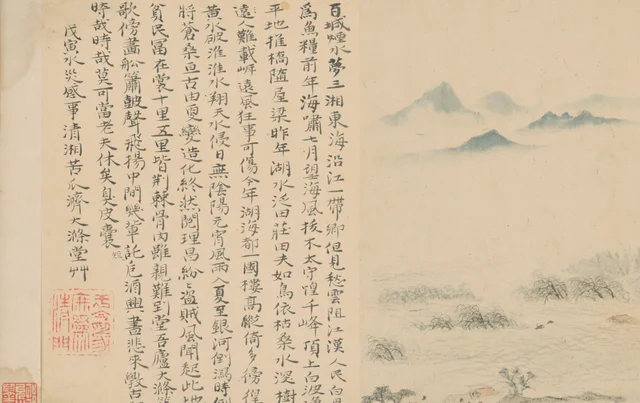 百城煙水夢三湘東海沿江一帶鄉但見愁雲阻江漢人民白
爲魚糧前年海嘯七月望海風拔木太守惶千峰頂上白波
平地推橋隨屋梁昨年湖水泛田莊田夫如鳥依枯桑水深樹
遠人難載岼遠風狂事可傷今年湖海都一國樓高縱倚多傍徨
黄水破淮淮水翔天水侵日無陰陽元宵風雨入夏里銀河倒瀉時
將蒼桑亘古由更變造化終狀閱理昌紛〻盜賊風聞起此地
貧民冨在裳十里五里皆荆棘骨肉雖親難到堂吾廬大滌
歌傍畵船簫鼓聲飛揚中間輩託卮酒興畵悲來古
時哉時哉莫可當老夫休矣臭皮囊
戊寅水災感事清湘苦瓜濟大滌堂艸